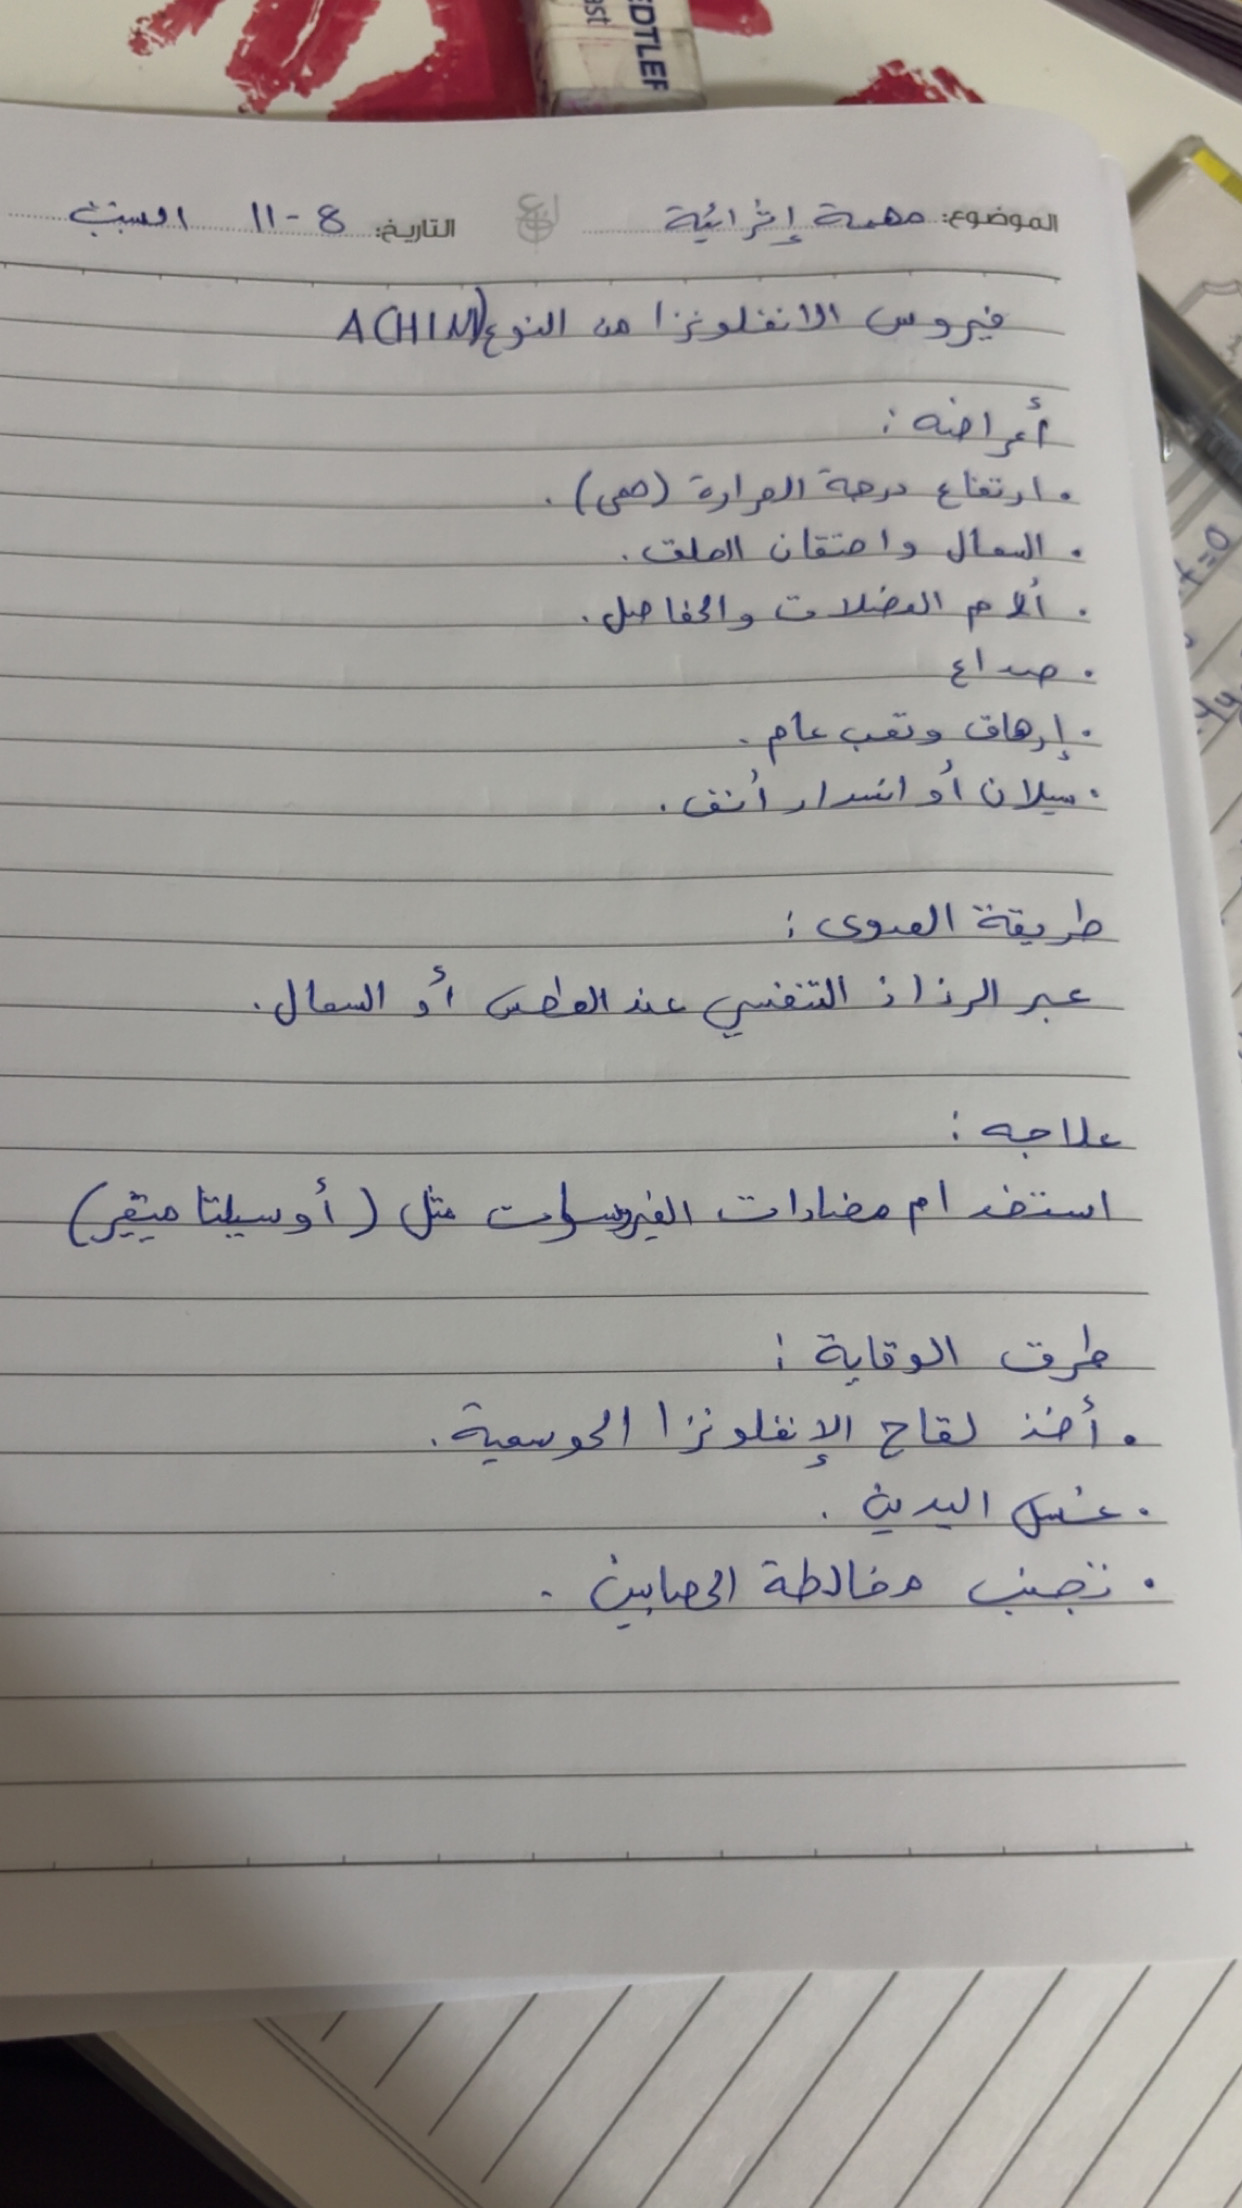 EDTLER
ast
الموضوع: مهمة إثرائية التاريخ: 8-11 السبت
فيروس الانفلونزا من النوع A(H1N1)
أعراضه :
• ارتفاع درجة الحرارة (حمى) .
• السعال واحتقان الحلق .
• ألام العضلات والمفاصل .
• صداع
• إرهاق وتعب عام .
• سيلان أو انسداد أنف .
طريقة العدوى :
عبر الرذاذ التنفسي عند العطس أو السعال .
علاجه :
استخدام مضادات الفيروسات مثل (أوسيلتاميفير)
طرق الوقاية :
• أخذ لقاح الإنفلونزا الموسمية .
• غسل اليدين .
• تجنب مخالطة المصابين .